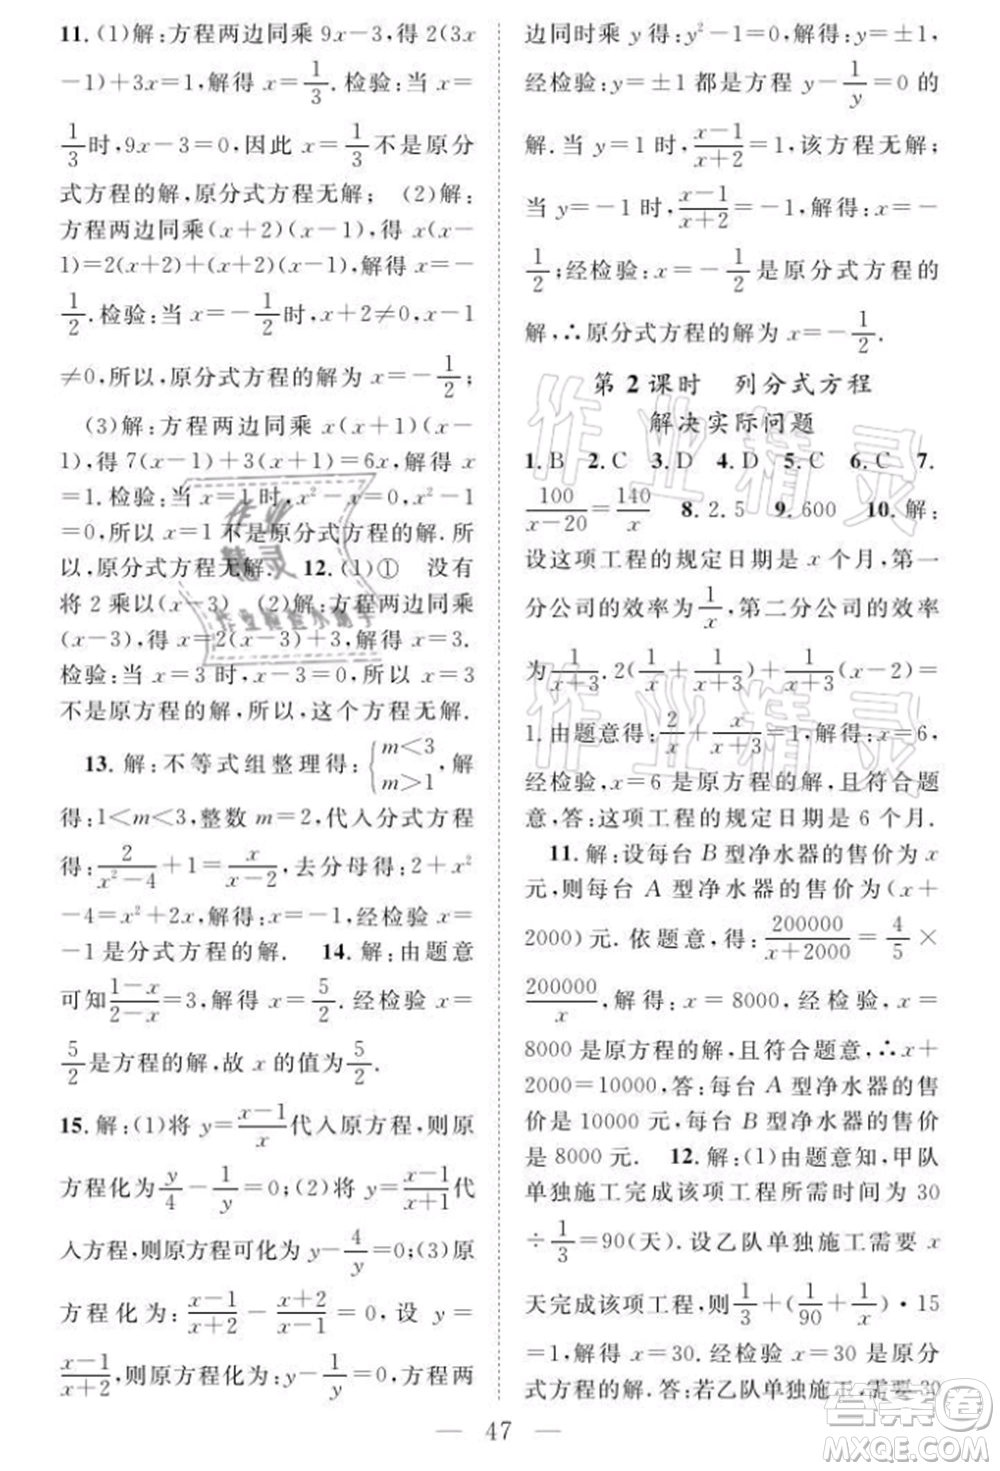 11. (1)解:方程两边同乘 9x－3,得 2(3x
－1)＋3x＝1,解得 x＝1/3. 检验:当 x＝
1/3时,9x－3＝0,因此 x＝1/3 不是原分
式方程的解,原分式方程无解; (2)解:
方程两边同乘(x＋2)(x－1),得 x(x－
1)＝2(x＋2)＋(x＋2)(x－1),解得 x＝－
1/2. 检验:当 x＝－1/2时,x＋2≠0,x－1
≠0,所以,原分式方程的解为 x＝－1/2;
(3)解:方程两边同乘 x(x＋1)(x－
1),得 7(x－1)＋3(x＋1)＝6x,解得 x
＝1. 检验:当 x＝1 时,x²－x＝0,x²－1＝
0,所以 x＝1 不是原分式方程的解. 所
以,原分式方程无解. 12. (1)① 没有
将 2 乘以(x－3) (2)解:方程两边同乘
(x－3),得 x＝2(x－3)＋3,解得 x＝3.
检验:当 x＝3 时,x－3＝0,因此 x＝3
不是原方程的解,所以,这个方程无解.
13. 解:不等式组整理得:{m＜3 m＞1,解
得:1＜m＜3,整数 m＝2,代入分式方程
得:2/(x²－4)＋1＝x/(x－2),去分母得:2＋x²
－4＝x²＋2x,解得:x＝－1,经检验 x＝
－1 是分式方程的解. 14. 解:由题意
可知(1－x)/(2－x)＝3,解得 x＝5/2. 经检验 x＝
5/2是方程的解,故 x 的值为5/2.
15. 解:(1)将 y＝(x－1)/x代入原方程,则原
方程化为 y/4－1/y＝0;(2)将 y＝(x－1)/(x＋1)代
入方程,则原方程可化为 y－4/y＝0;(3)原
方程化为:(x－1)/(x＋2)－(x＋2)/(x－1)＝0,设 y＝
(x－1)/(x＋2),则原方程化为:y－1/y＝0,方程两
边同时乘 y得:y²－1＝0,解得:y＝±1,
经检验:y＝±1 都是方程 y－1/y＝0 的
解. 当 y＝1 时,(x－1)/(x＋2)＝1,该方程无解;
当 y＝－1 时,(x－1)/(x＋2)＝－1,解得:x＝－
1/2;经检验:x＝－1/2是原分式方程的
解,∴原分式方程的解为 x＝－1/2.
第 2 课时 列分式方程
解决实际问题
1. B 2. C 3. D 4. D 5. C 6. C 7.
100/(x－20)＝140/x 8. 2. 5 9. 600 10. 解:
设这项工程的规定日期是 x 个月,第一
分公司的效率为1/x,第二分公司的效率
为1/(x＋3). 2(1/x＋1/(x＋3))＋1/(x＋3)(x－2)＝
1. 由题意得:2/x＋x/(x＋3)＝1. 解得:x＝6,
经检验,x＝6 是原方程的解,且符合题
意,答:这项工程的规定日期是 6 个月.
11. 解:设每台 B 型净水器的售价为 x
元,则每台 A 型净水器的售价为(x＋
2000)元. 依题意,得:200000/(x＋2000)＝4/5×
200000/x,解得:x＝8000,经检验,x＝
8000 是原方程的解,且符合题意,∴x＋
2000＝10000,答:每台 A 型净水器的售
价是 10000 元,每台 B 型净水器的售价
是 8000 元. 12. 解:(1)由题意知,甲队
单独施工完成该项工程所需时间为 30
÷1/3＝90(天). 设乙队单独施工需要 x
天完成该项工程,则1/3＋(1/90＋1/x)·15
＝1,解得:x＝30. 经检验 x＝30 是原分
式方程的解. 答:若乙队单独施工,需要 30
47
作业精灵
作业精灵
作业精灵
作业检查小助手
答案圈
MXQE.COM